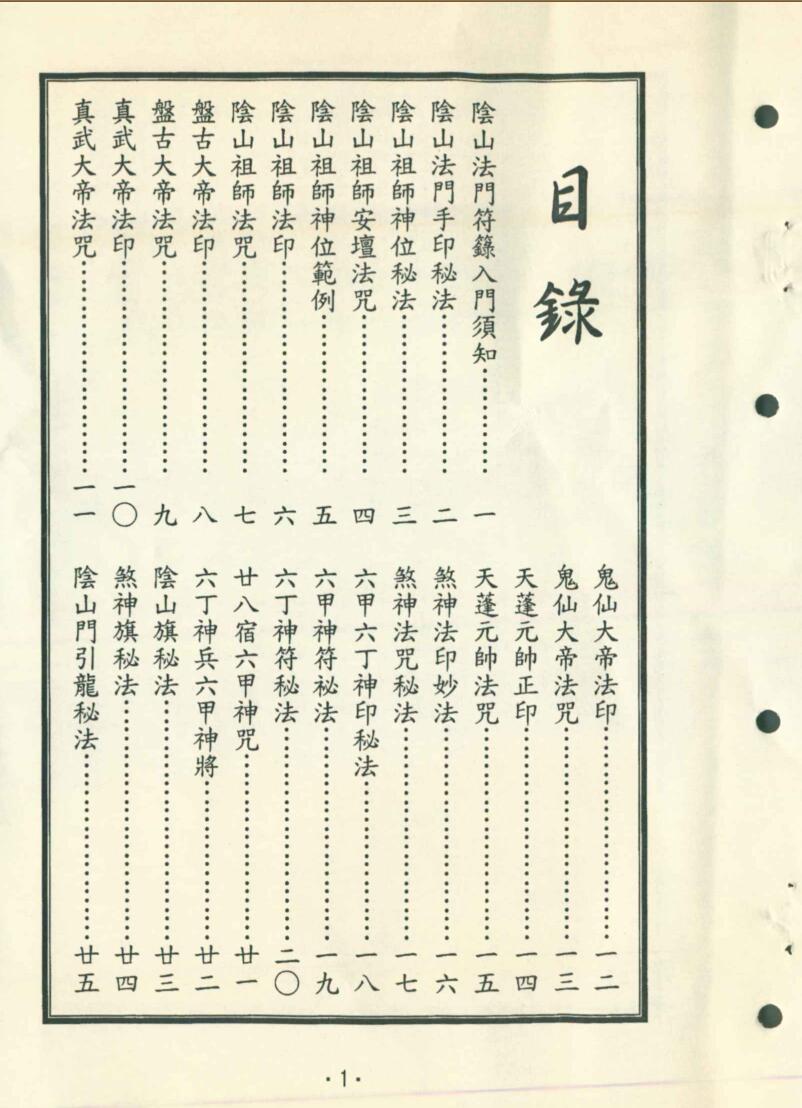 目錄
陰山法門符籙入門須知⋯⋯⋯⋯一
陰山法門手印秘法⋯⋯⋯⋯二
陰山祖師神位秘法⋯⋯⋯⋯三
陰山祖師安壇法咒⋯⋯⋯⋯四
陰山祖師神位範例⋯⋯⋯⋯五
陰山祖師法印⋯⋯⋯⋯六
陰山祖師法咒⋯⋯⋯⋯七
盤古大帝法印⋯⋯⋯⋯八
盤古大帝法咒⋯⋯⋯⋯九
真武大帝法印⋯⋯⋯⋯一〇
真武大帝法咒⋯⋯⋯⋯一一
鬼仙大帝法印⋯⋯⋯⋯一二
鬼仙大帝法咒⋯⋯⋯⋯一三
天蓬元帥正印⋯⋯⋯⋯一四
天蓬元帥法咒⋯⋯⋯⋯一五
煞神法印妙法⋯⋯⋯⋯一六
煞神法咒秘法⋯⋯⋯⋯一七
六甲六丁神印秘法⋯⋯⋯⋯一八
六甲神符祕法⋯⋯⋯⋯一九
六丁神符秘法⋯⋯⋯⋯二〇
廿八宿六甲神咒⋯⋯⋯⋯廿一
六丁神兵六甲神將⋯⋯⋯⋯廿二
陰山旗秘法⋯⋯⋯⋯廿三
煞神旗秘法⋯⋯⋯⋯廿四
陰山門引龍秘法⋯⋯⋯⋯廿五
·1·